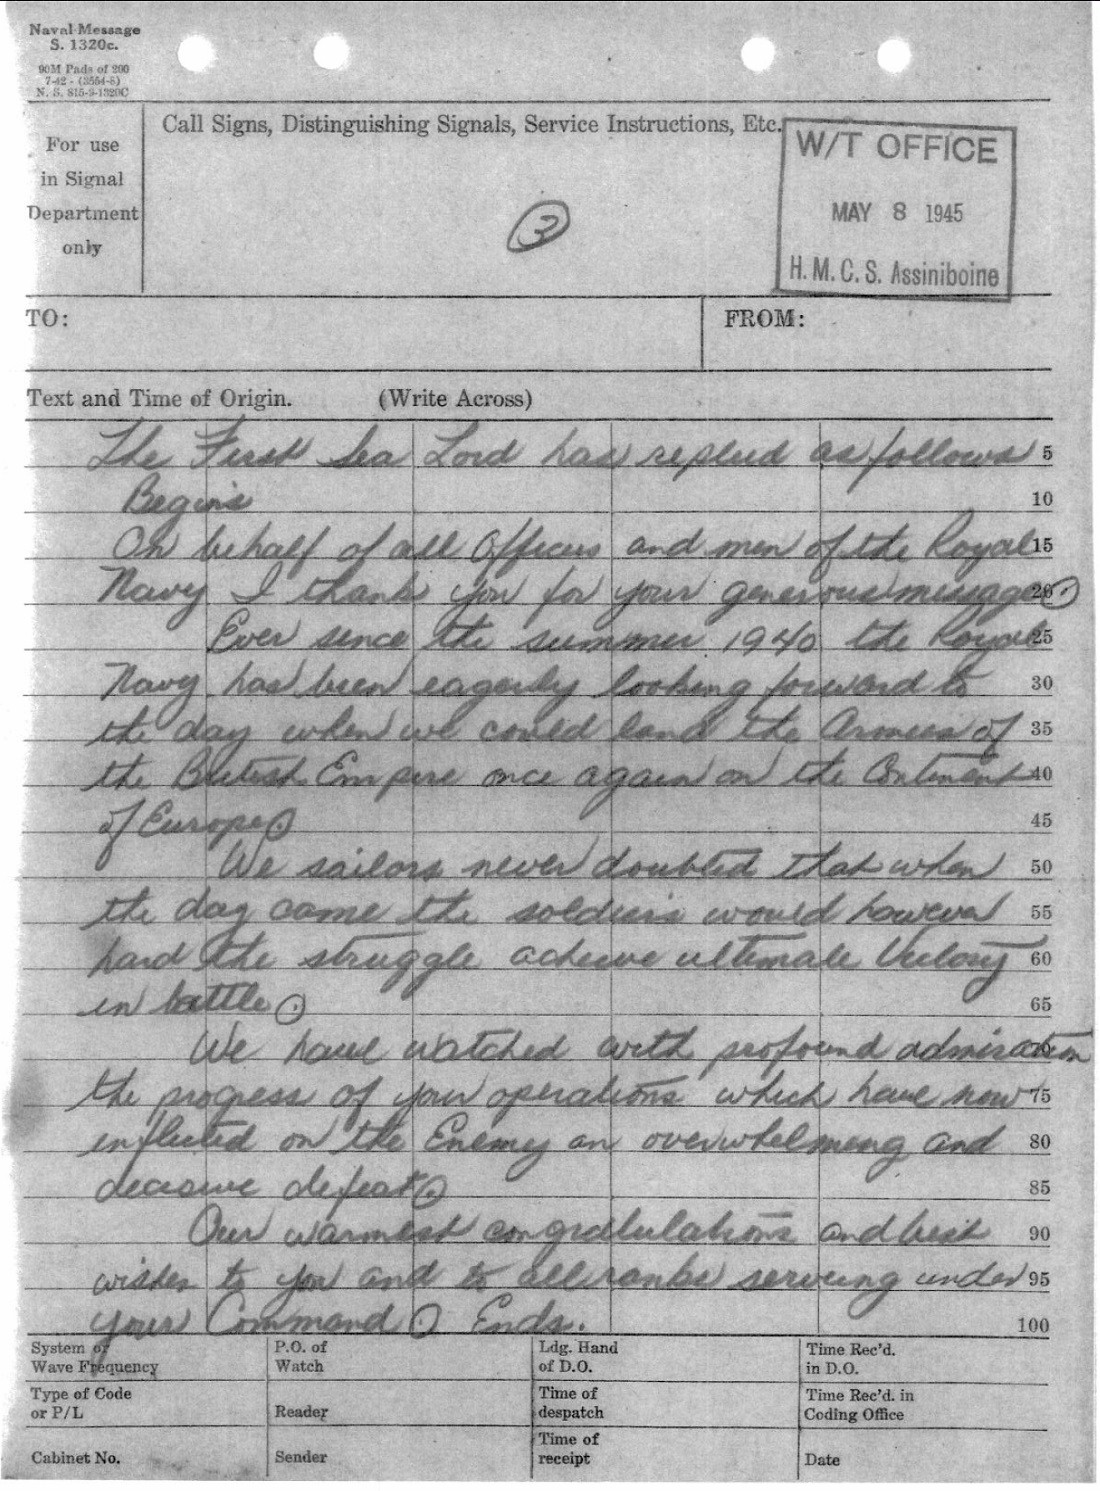 Naval Message
S. 1320c.
90M Pads of 200
7-42 - (3554-5)
N. S. 815-9-1320C
For use
in Signal
Department
only
Call Signs, Distinguishing Signals, Service Instructions, Etc.
3
W/T OFFICE
MAY 8 1945
H.M.C.S. Assiniboine
TO:
FROM:
Text and Time of Origin. (Write Across)
The First Sea Lord has replied as follows 5
Begins 10
On behalf of all Officers and men of the Royal 15
Navy I thank you for your generous message. 20
Ever since the summer 1940 the Royal 25
Navy has been eagerly looking forward to 30
the day when we could land the Armies of 35
the British Empire once again on the Continent 40
of Europe. 45
We sailors never doubted that when 50
the day came the soldiers would however 55
hard the struggle achieve ultimate Victory 60
in battle. 65
We have watched with profound admiration 70
the progress of your operations which have now 75
inflicted on the Enemy an overwhelming and 80
decisive defeat. 85
Our warmest congratulations and best 90
wishes to you and to all ranks serving under 95
your Command. Ends. 100
System or
Wave Frequency
P.O. of
Watch
Ldg. Hand
of D.O.
Time Rec'd.
in D.O.
Type of Code
or P/L
Reader
Time of
despatch
Time Rec'd. in
Coding Office
Cabinet No.
Sender
Time of
receipt
Date